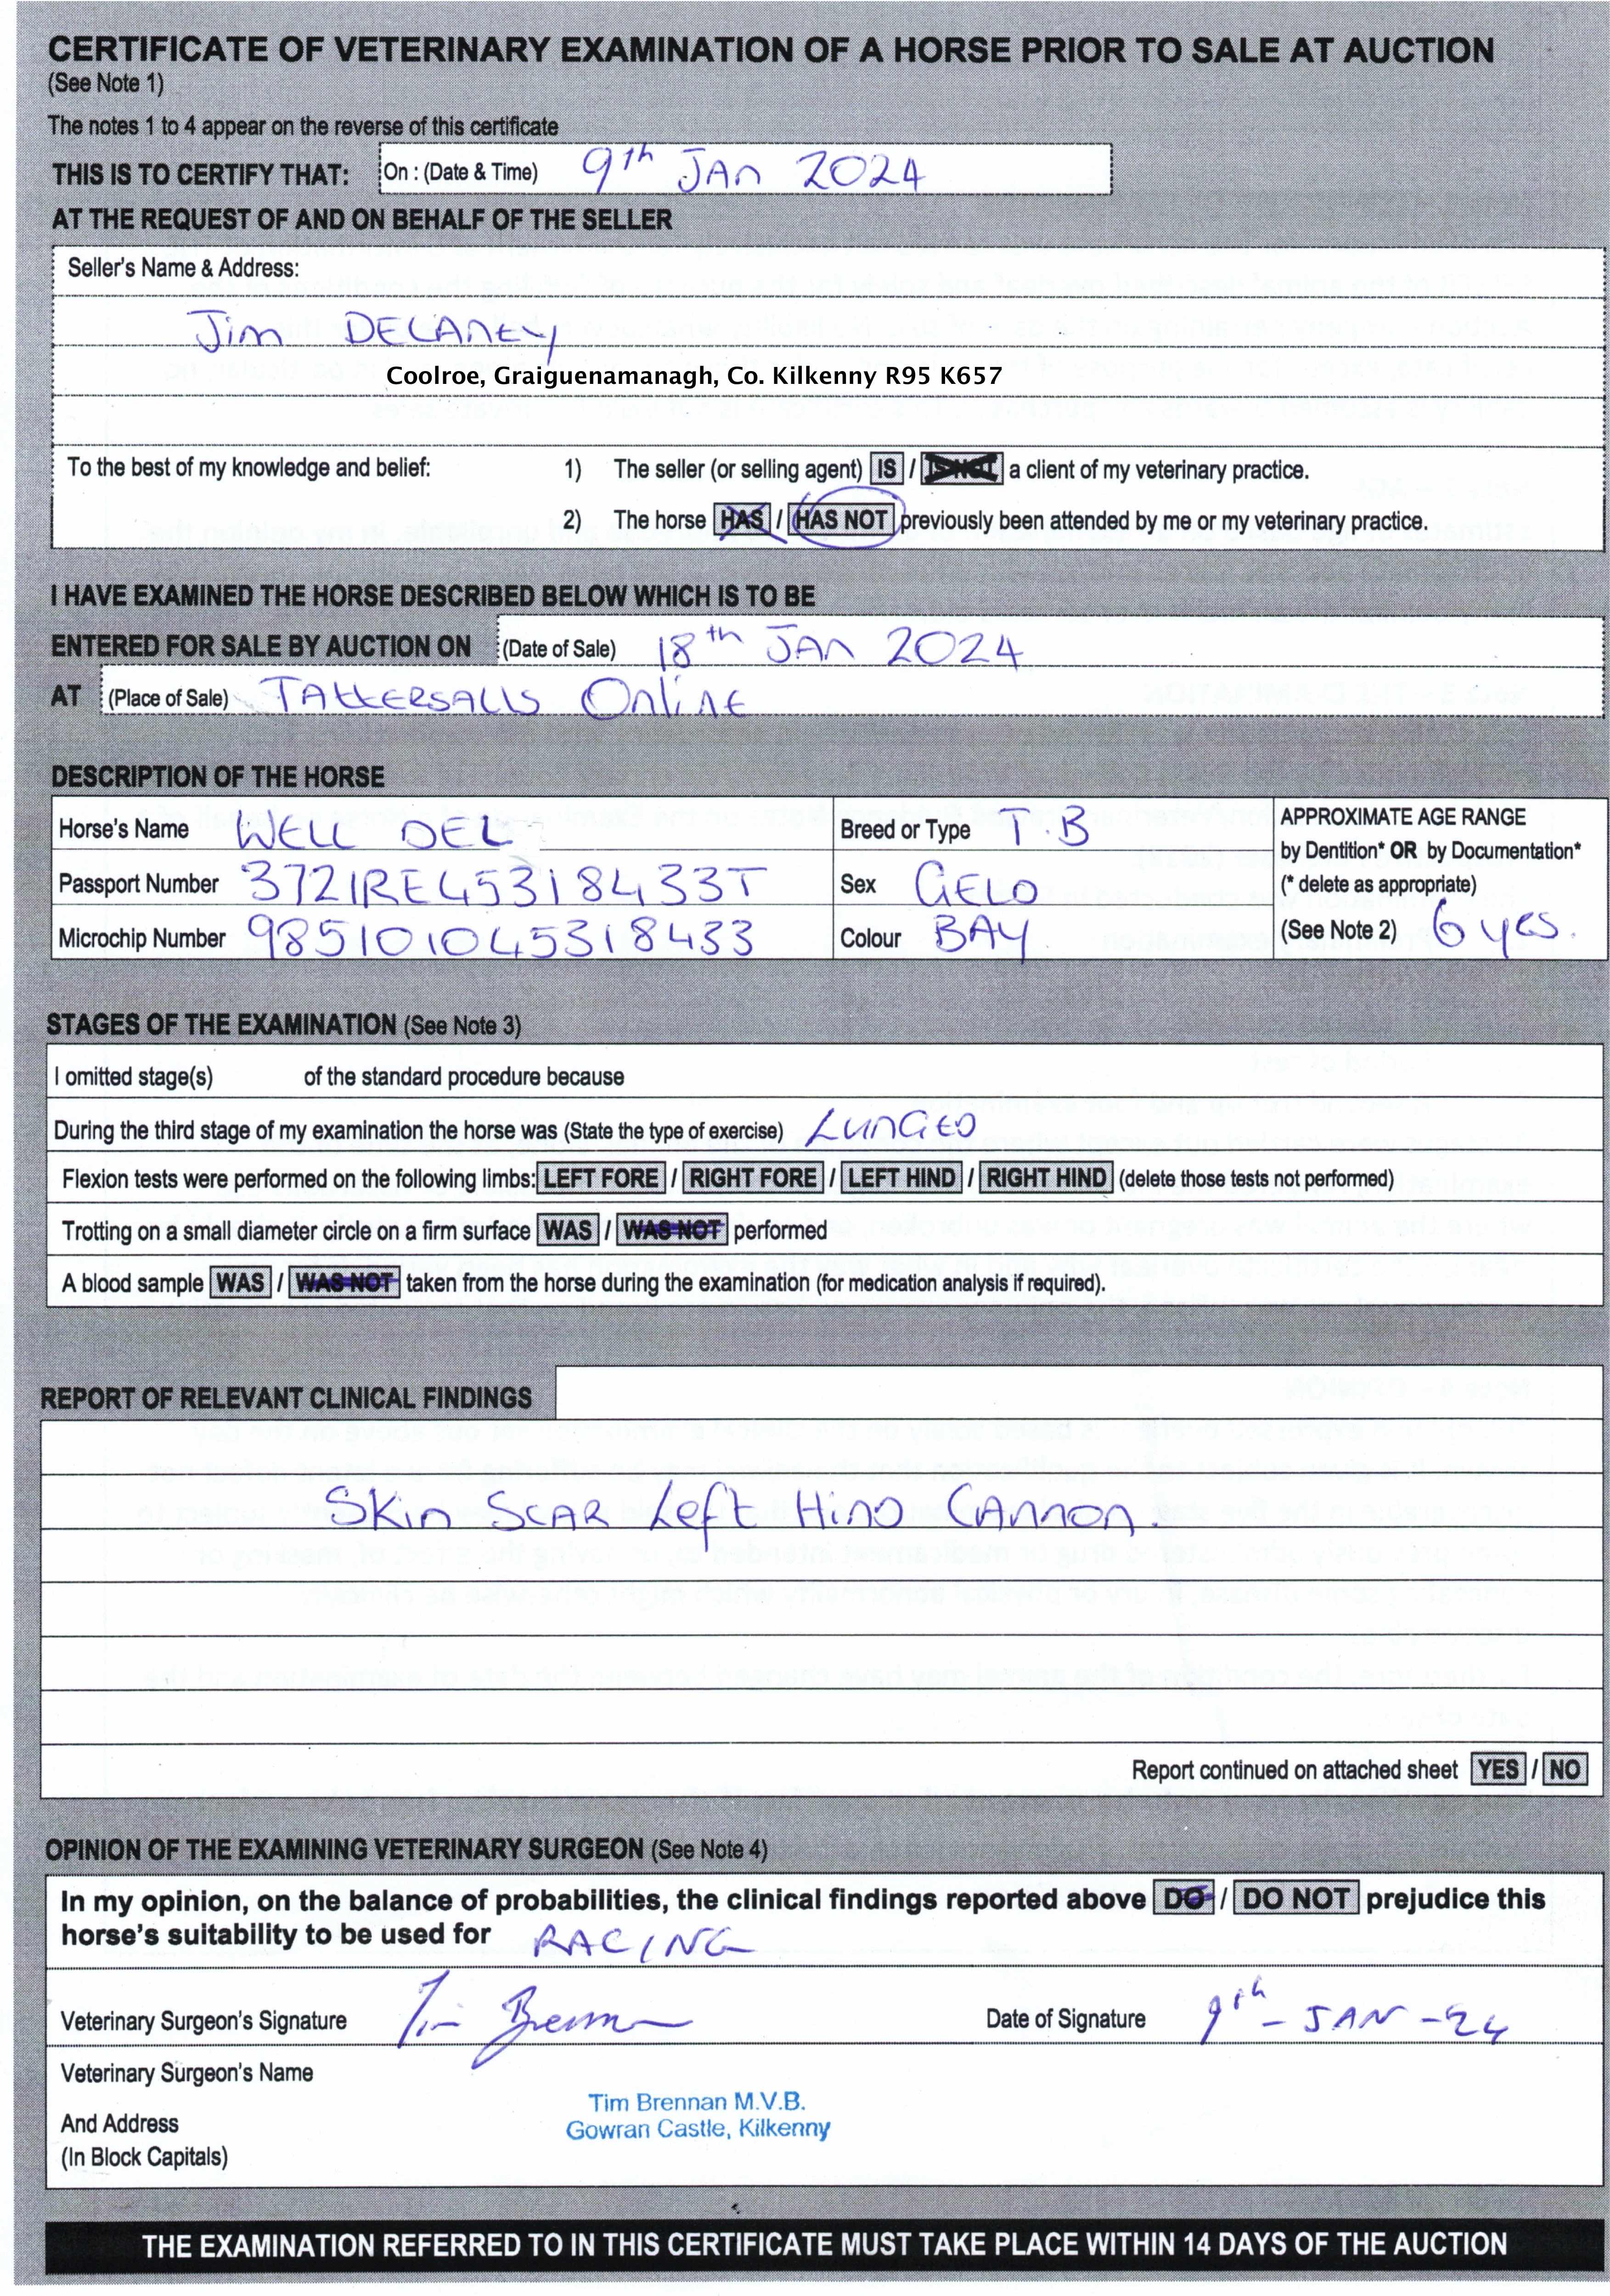 CERTIFICATE OF VETERINARY EXAMINATION OF A HORSE PRIOR TO SALE AT AUCTION
(See Note 1)
The notes 1 to 4 appear on the reverse of this certificate
THIS IS TO CERTIFY THAT: On : (Date & Time) 9th JAN 2024
AT THE REQUEST OF AND ON BEHALF OF THE SELLER
Seller's Name & Address:
Jim DELANEY
Coolroe, Graiguenamanagh, Co. Kilkenny R95 K657
To the best of my knowledge and belief: 1) The seller (or selling agent) IS / IS NOT a client of my veterinary practice.
2) The horse HAS / HAS NOT previously been attended by me or my veterinary practice.
I HAVE EXAMINED THE HORSE DESCRIBED BELOW WHICH IS TO BE
ENTERED FOR SALE BY AUCTION ON (Date of Sale) 18th JAN 2024
AT (Place of Sale) TATTERSALLS OnlinE
DESCRIPTION OF THE HORSE
Horse's Name WELL DEL Breed or Type T.B APPROXIMATE AGE RANGE
by Dentition* OR by Documentation*
Passport Number 372IRE45318433T Sex GELD (* delete as appropriate)
Microchip Number 985101045318433 Colour BAY (See Note 2) 6 yrs.
STAGES OF THE EXAMINATION (See Note 3)
I omitted stage(s) of the standard procedure because
During the third stage of my examination the horse was (State the type of exercise) LUNGED
Flexion tests were performed on the following limbs: LEFT FORE / RIGHT FORE / LEFT HIND / RIGHT HIND (delete those tests not performed)
Trotting on a small diameter circle on a firm surface WAS / WAS NOT performed
A blood sample WAS / WAS NOT taken from the horse during the examination (for medication analysis if required).
REPORT OF RELEVANT CLINICAL FINDINGS
Skin SCAR Left HIND CANNON.
Report continued on attached sheet YES / NO
OPINION OF THE EXAMINING VETERINARY SURGEON (See Note 4)
In my opinion, on the balance of probabilities, the clinical findings reported above DO / DO NOT prejudice this
horse's suitability to be used for RACING
Veterinary Surgeon's Signature Tim Brennan Date of Signature 9th - JAN - 24
Veterinary Surgeon's Name
Tim Brennan M.V.B.
And Address Gowran Castle, Kilkenny
(In Block Capitals)
THE EXAMINATION REFERRED TO IN THIS CERTIFICATE MUST TAKE PLACE WITHIN 14 DAYS OF THE AUCTION